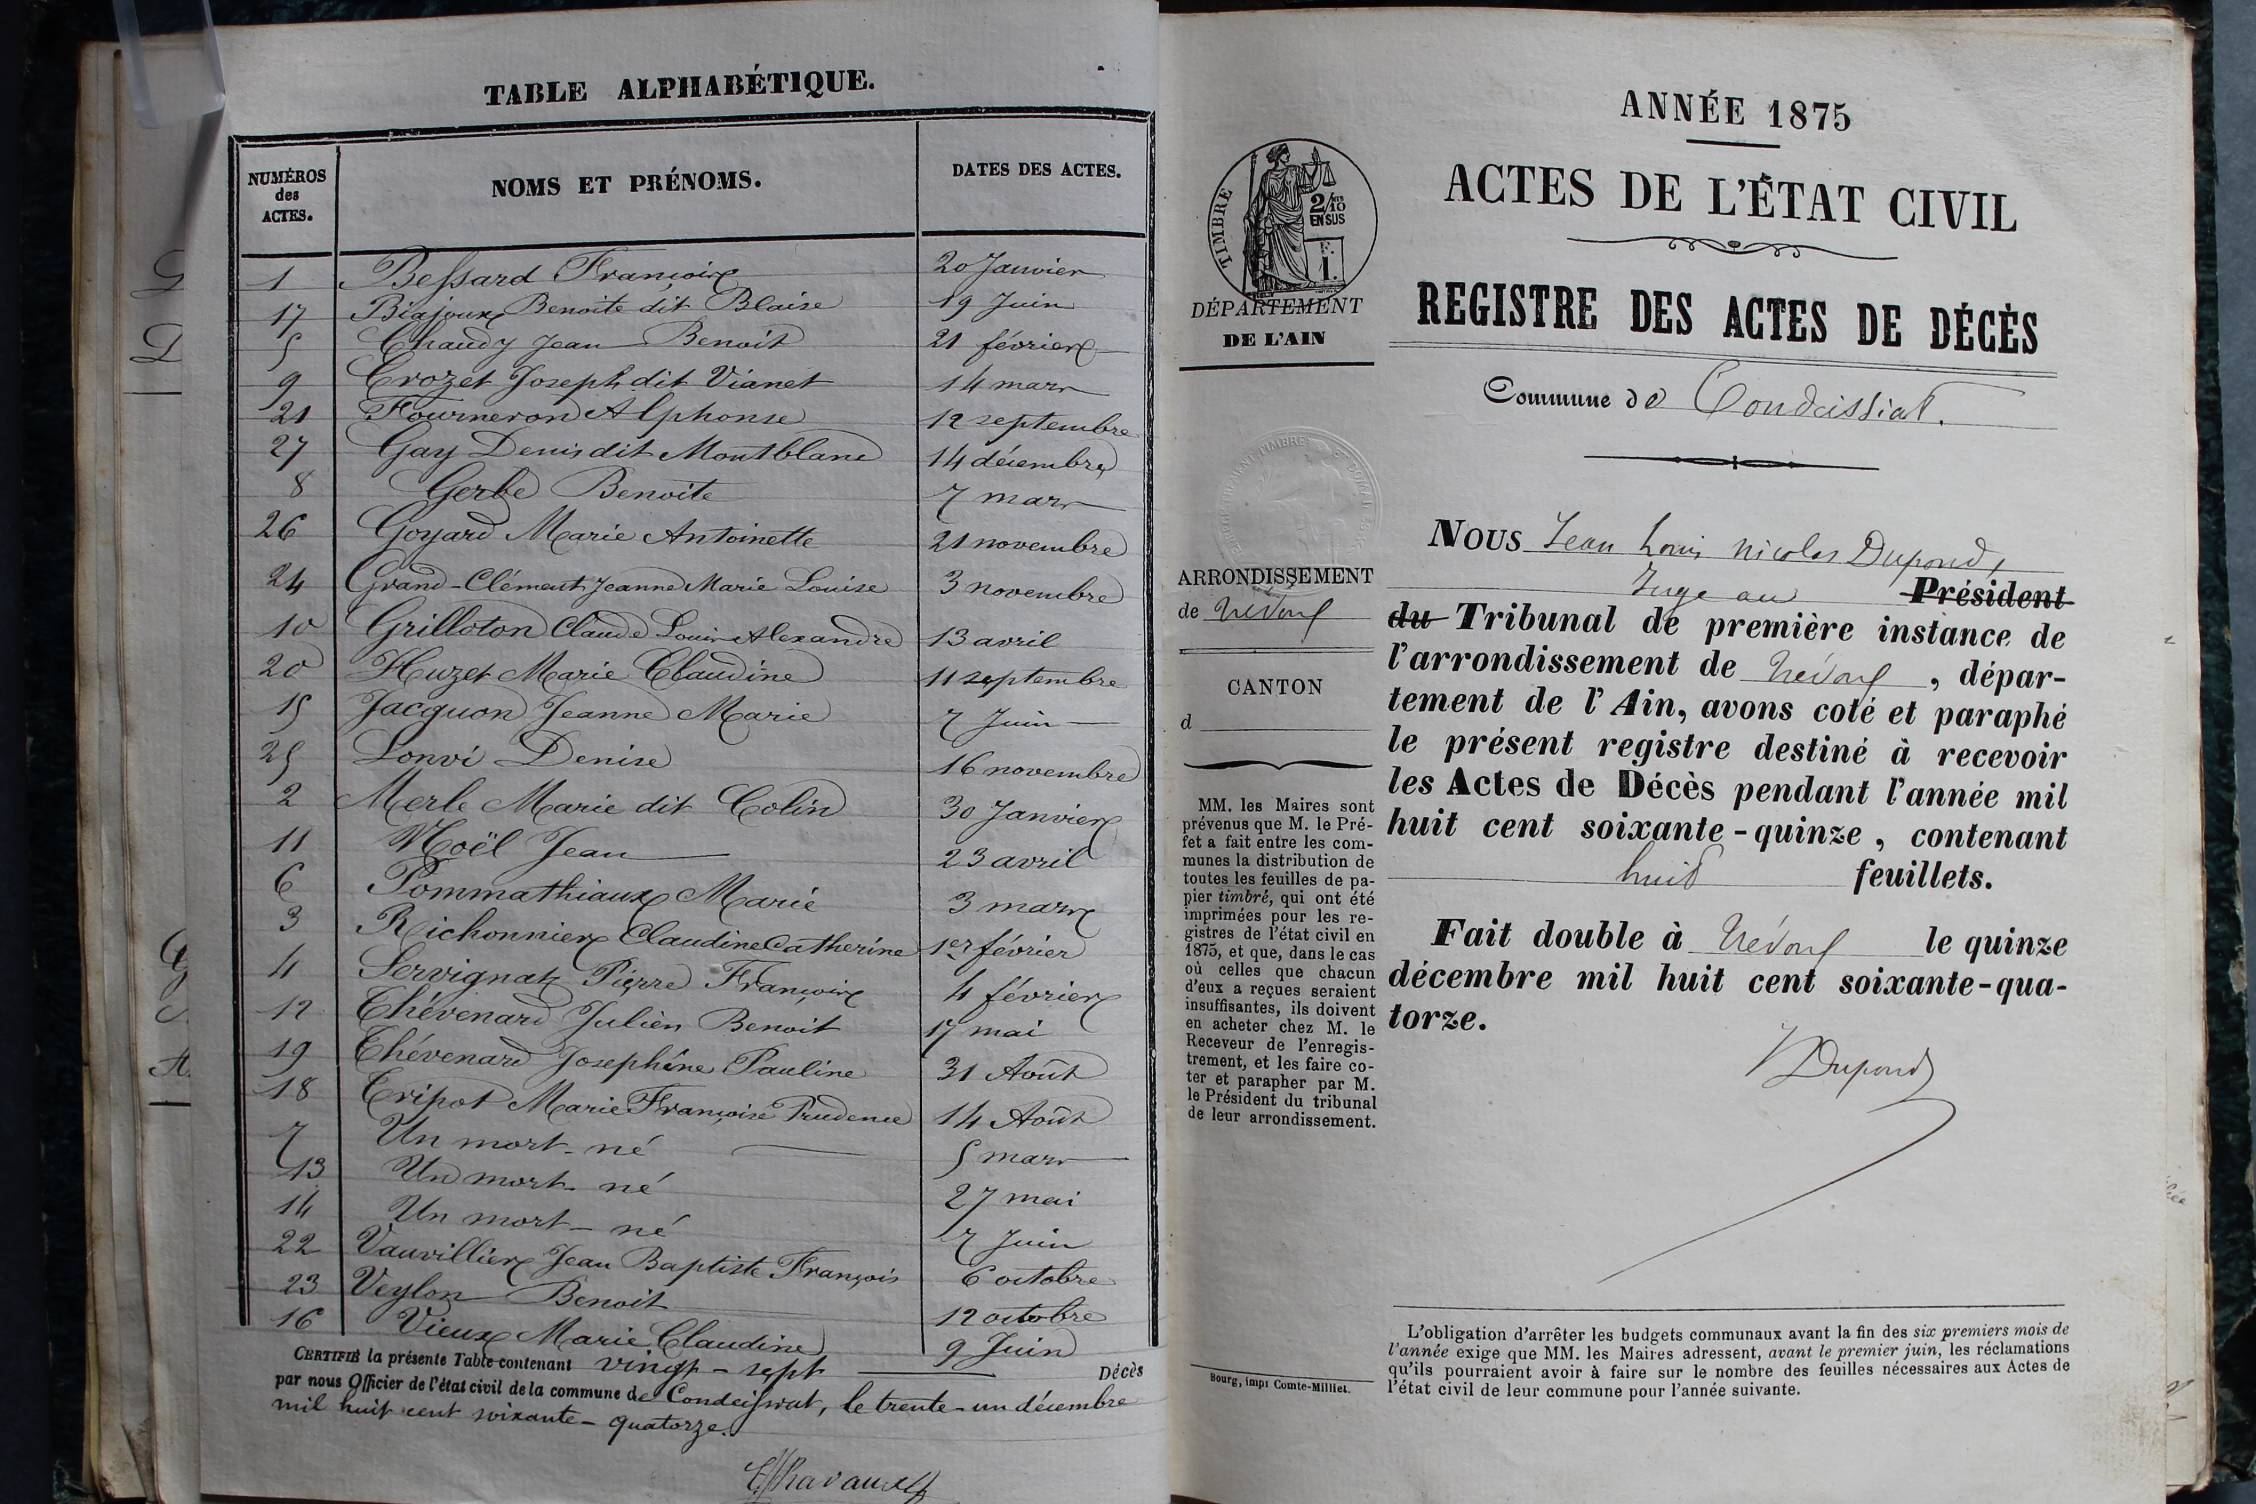 TABLE ALPHABÉTIQUE.
NUMÉROS des ACTES. NOMS ET PRÉNOMS. DATES DES ACTES.
1 Bessard François 20 Janvier
17 Biajoux Benoite dit Blaise 19 Juin
5 Chaudy Jean Benoit 21 février
9 Crozet Joseph dit Vianet 14 mars
21 Fourneron Alphonse 12 septembre
27 Gay Denis dit Montblanc 14 décembre
8 Gerbe Benoite 7 mars
26 Goyard Marie Antoinette 21 novembre
24 Grand-Clément Jeanne Marie Louise 3 novembre
10 Grilloton Claude Louis Alexandre 13 avril
20 Huzet Marie Claudine 11 septembre
15 Jacquon Jeanne Marie 7 Juin
25 Lonvi Denise 16 novembre
2 Merle Marie dit Colin 30 Janvier
11 Noël Jean 23 avril
6 Pommathiaux Marie 3 mars
3 Richonnier Claudine Catherine 1er février
4 Servignat Pierre François 4 février
12 Thévenard Julien Benoit 17 mai
19 Thévenard Josephine Pauline 31 Août
18 Tripot Marie Françoise Prudence 14 Août
7 Un mort-né 5 mars
13 Un mort-né 27 mai
14 Un mort-né 7 Juin
22 Vauvillier Jean Baptiste François 6 octobre
23 Veylon Benoit 12 octobre
16 Vieux Marie Claudine 9 Juin
CERTIFIÉ la présente Table contenant vingt-sept Décès
par nous Officier de l'état civil de la commune de Condeissiat, le trente-un décembre
mil huit cent soixante-quatorze.
ANNÉE 1875
ACTES DE L'ÉTAT CIVIL
REGISTRE DES ACTES DE DÉCÈS
Commune de Condeissiat.
TIMBRE
2/10
EN SUS
1.
DÉPARTEMENT
DE L'AIN
ARRONDISSEMENT
de Trévoux
CANTON
d
MM. les Maires sont
prévenus que M. le Pré-
fet a fait entre les com-
munes la distribution de
toutes les feuilles de pa-
pier timbré, qui ont été
imprimées pour les re-
gistres de l'état civil en
1875, et que, dans le cas
où celles que chacun
d'eux a reçues seraient
insuffisantes, ils doivent
en acheter chez M. le
Receveur de l'enregis-
trement, et les faire co-
ter et parapher par M.
le Président du tribunal
de leur arrondissement.
Bourg, impr Comte-Milliet.
NOUS Jean Louis Nicolas Dupond,
Juge au Président
du Tribunal de première instance de
l'arrondissement de Trévoux, dépar-
tement de l'Ain, avons coté et paraphé
le présent registre destiné à recevoir
les Actes de Décès pendant l'année mil
huit cent soixante-quinze, contenant
huit feuillets.
Fait double à Trévoux le quinze
décembre mil huit cent soixante-qua-
torze.
Dupond
L'obligation d'arrêter les budgets communaux avant la fin des six premiers mois de
l'année exige que MM. les Maires adressent, avant le premier juin, les réclamations
qu'ils pourraient avoir à faire sur le nombre des feuilles nécessaires aux Actes de
l'état civil de leur commune pour l'année suivante.